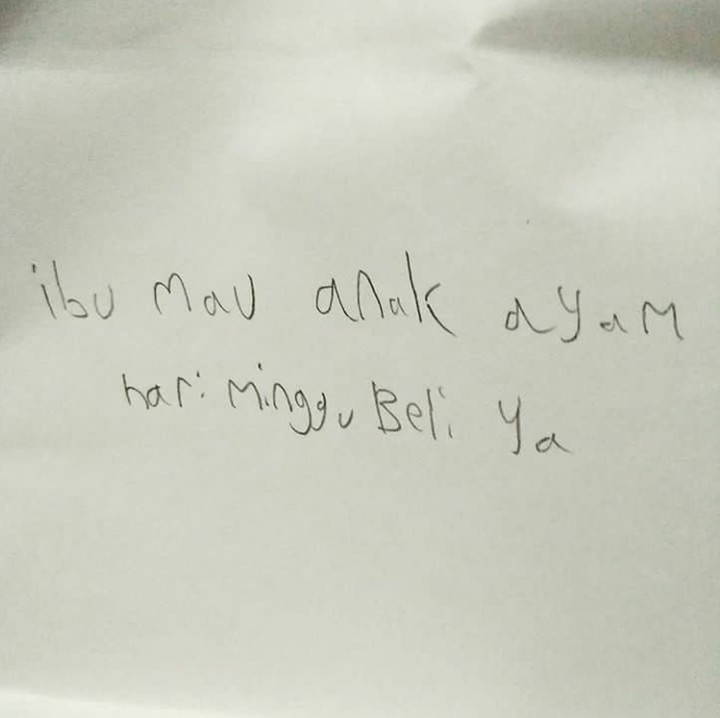 ibu mau anak ayam
hari minggu Beli ya